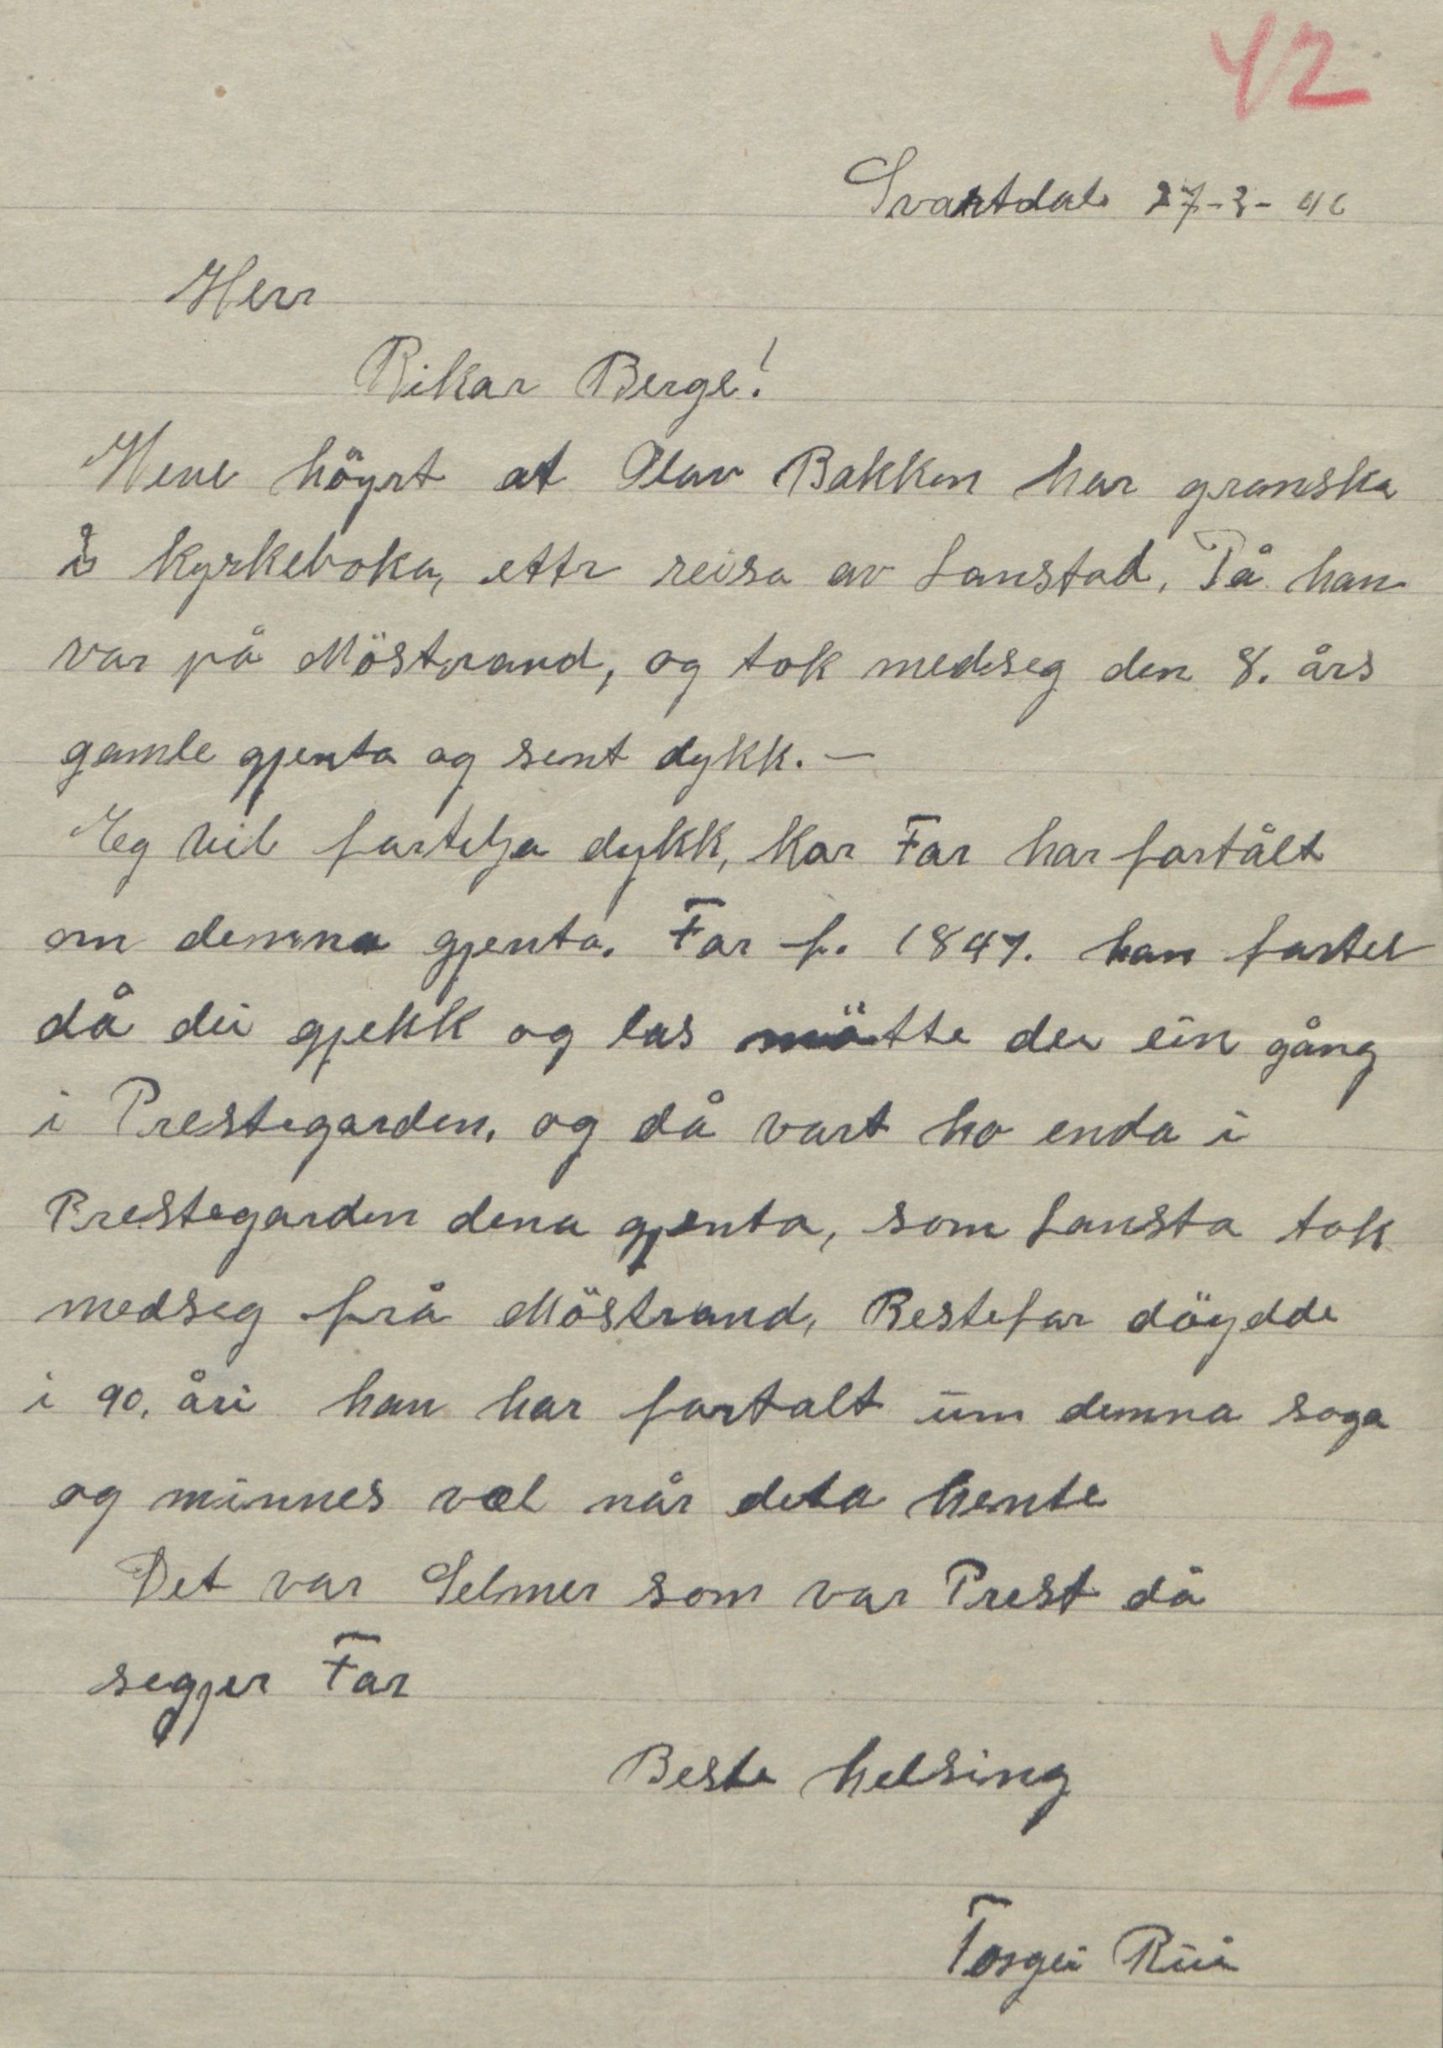 42
Svartdal 27-3-46
Herr
Rikar Berge!
Heve höyrt at Olav Bakken har granska
i kyrkeboka, ettr reisa av Lanstad, Då han
var på Möstrand, og tok medseg den 8. års
gamle gjenta og sent dykk. —
Eg vil fortelja dykk, kor Far har fortålt
om demna gjenta. Far f. 1847. han fortel
då dei gjekk og las mötte dei ein gång
i Prestegarden, og då vart ho enda i
Prestegarden dena gjenta, som Lansta tok
medseg frå Möstrand, Bestefar döydde
i 90. åri han har fortalt um demna soga
og minnes vel når deta hente
Det var Selmer som var Prest då
segjer Far
Beste helsing